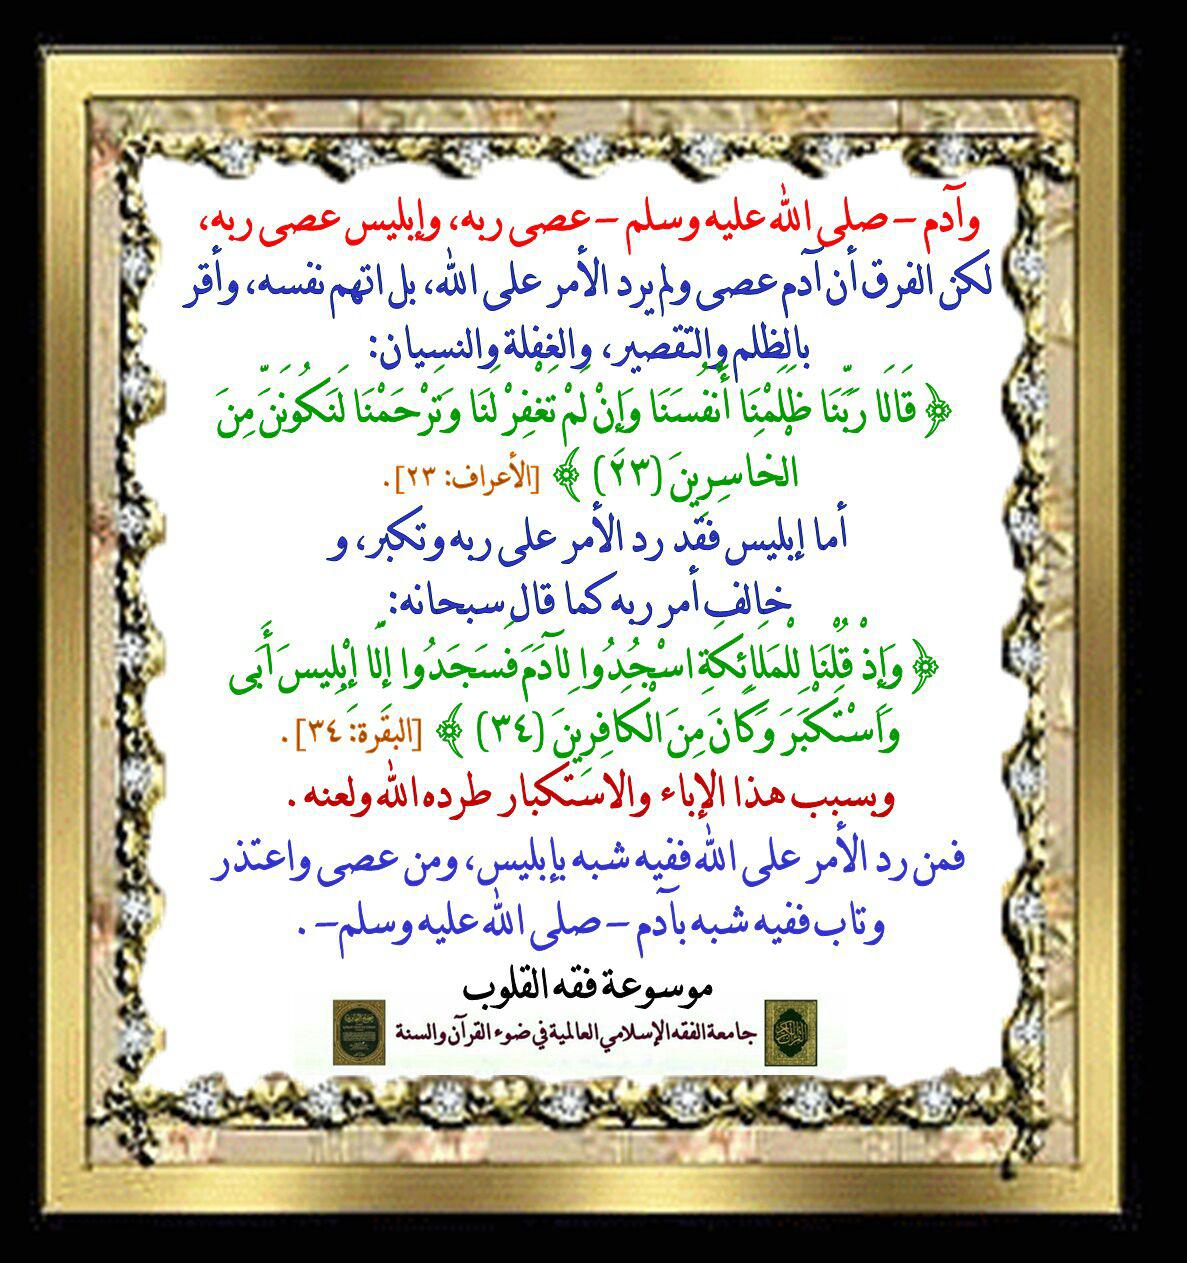 وآدم – صلى الله عليه وسلم – عصى ربه، وإبليس عصى ربه،
لكن الفرق أن آدم عصى ولم يرد الأمر على الله، بل اتهم نفسه، وأقر
بالظلم والتقصير، والغفلة والنسيان:
﴿ قَالَا رَبَّنَا ظَلَمْنَا أَنْفُسَنَا وَإِنْ لَمْ تَغْفِرْ لَنَا وَتَرْحَمْنَا لَنَكُونَنَّ مِنَ
الْخَاسِرِينَ (٢٣) ﴾ [الأعراف: ٢٣] .
أما إبليس فقد رد الأمر على ربه وتكبر، و
خالف أمر ربه كما قال سبحانه:
﴿ وَإِذْ قُلْنَا لِلْمَلَائِكَةِ اسْجُدُوا لِآدَمَ فَسَجَدُوا إِلَّا إِبْلِيسَ أَبَى
وَاسْتَكْبَرَ وَكَانَ مِنَ الْكَافِرِينَ (٣٤) ﴾ [البقرة: ٣٤] .
وبسبب هذا الإباء والاستكبار طرده الله ولعنه .
فمن رد الأمر على الله ففيه شبه بإبليس، ومن عصى واعتذر
وتاب ففيه شبه بآدم – صلى الله عليه وسلم – .
موسوعة فقه القلوب
جامعة الفقه الإسلامي العالمية في ضوء القرآن والسنة